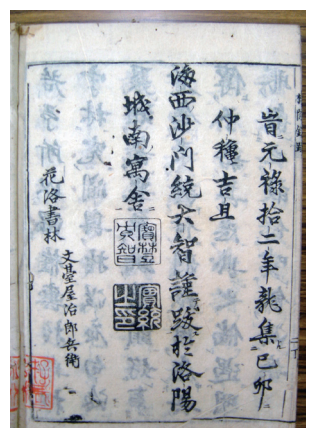 旹元祿拾二年龍集己卯
仲穐吉旦
海西沙門統天智謹跋於洛陽
城南寓舍
花洛書林
文臺屋治郎兵衛